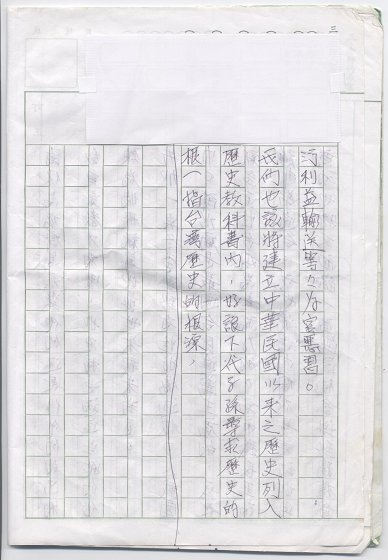 污利益輸送等々為官惡習。
我們也該將建立中華民國以來之歷史列入
歷史教科書內，好讓下代子孫尋求歷史的
根（指台灣歷史的根源，